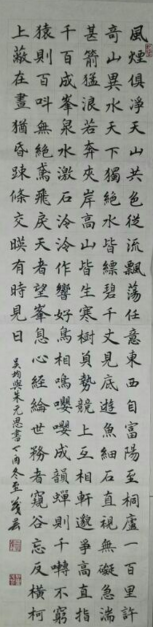 風煙俱淨天山共色從流飄蕩任意東西自富陽至桐廬一百里許
奇山異水天下獨絕水皆縹碧千丈見底遊魚細石直視無礙急湍
甚箭猛浪若奔夾岸高山皆生寒樹負勢競上互相軒邈爭高直指
千百成峯泉水激石泠泠作響好鳥相鳴嚶嚶成韻蟬則千轉不窮
猿則百叫無絕鳶飛戾天者望峯息心經綸世務者窺谷忘反橫柯
上蔽在晝猶昏疎條交映有時見日
吳均與朱元思書丁酉冬至